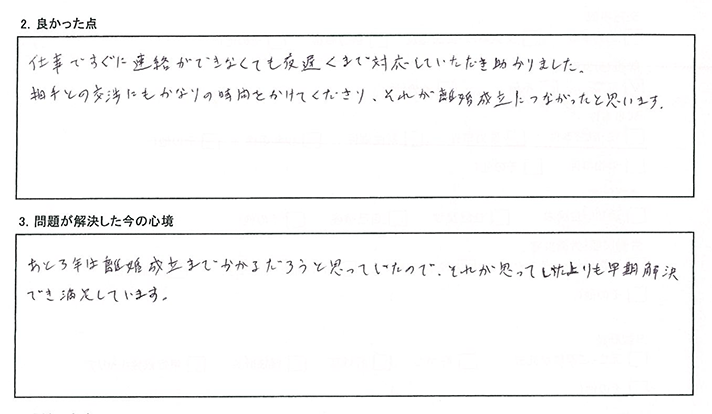 2. 良かった点
仕事ですぐに連絡ができなくても夜遅くまで対応していただき助かりました。
相手との交渉にもかなりの時間をかけてくださり、それが離婚成立につながったと思います。
3. 問題が解決した今の心境
あと3年は離婚成立までかかるだろうと思っていたので、それが思っていたよりも早期解決
でき満足しています。